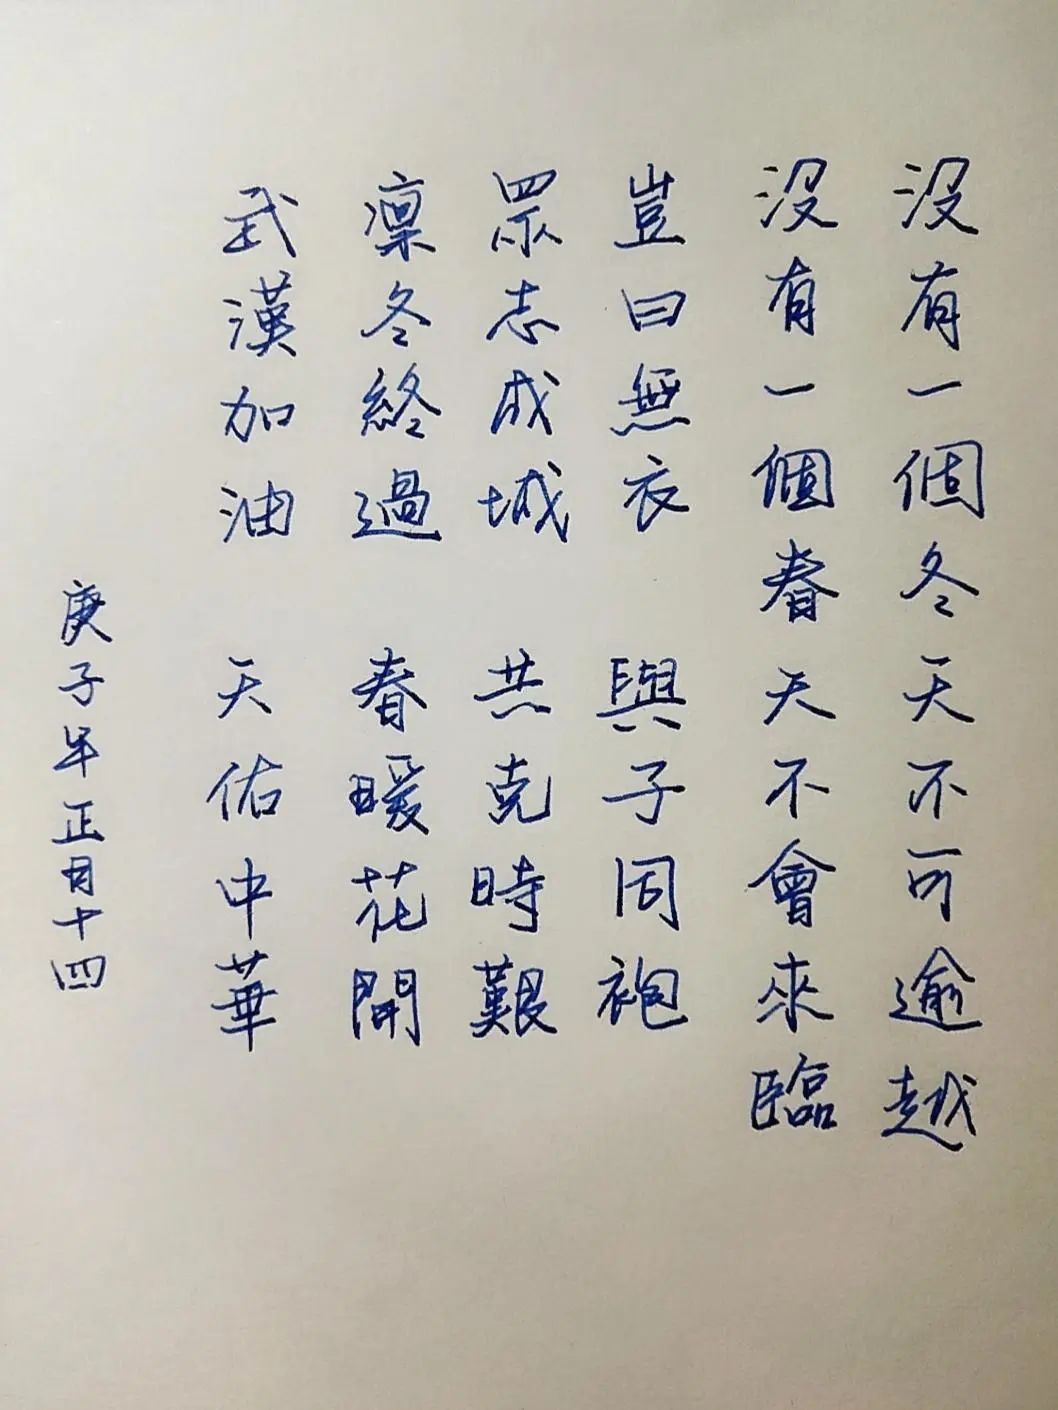 没有一個冬天不可逾越
没有一個春天不會來臨
豈曰無衣 與子同袍
眾志成城 共克時艱
凜冬終過 春暖花開
武漢加油 天佑中華
庚子年正月十四